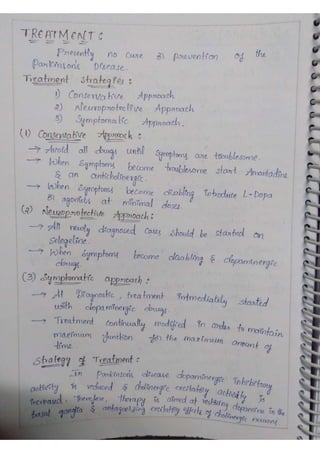 TREATMENT :
Presently no cure or prevention of the
Parkinson's Disease.
Treatment Strategies :
1) Conservative Approach
2) Neuroprotective Approach
3) Symptomatic Approach.
(1) Conservative Approach :
→ Avoid all drugs until symptoms are troublesome.
→ When symptoms become troublesome start Amantadine
& an anticholinergic.
→ When symptoms become disabling introduce L-Dopa
or agonists at minimal doses.
(2) Neuroprotective Approach :
→ All newly diagnosed cases should be started on
selegeline.
→ When symptoms become disabling & dopaminergic
drugs.
(3) Symptomatic approach :
→ At Diagnostic, treatment immediately started
with dopaminergic drugs.
→ Treatment continually modified in order to maintain
maximum function for the maximum amount of
time.
Strategy of Treatment :
In Parkinsons disease dopaminergic inhibitory
activity is reduced & cholinergic excitatory activity is
increased. Therefore, therapy is aimed at restoring dopamine in the
basal ganglia & antagonizing excitatory effects of cholinergic neurons